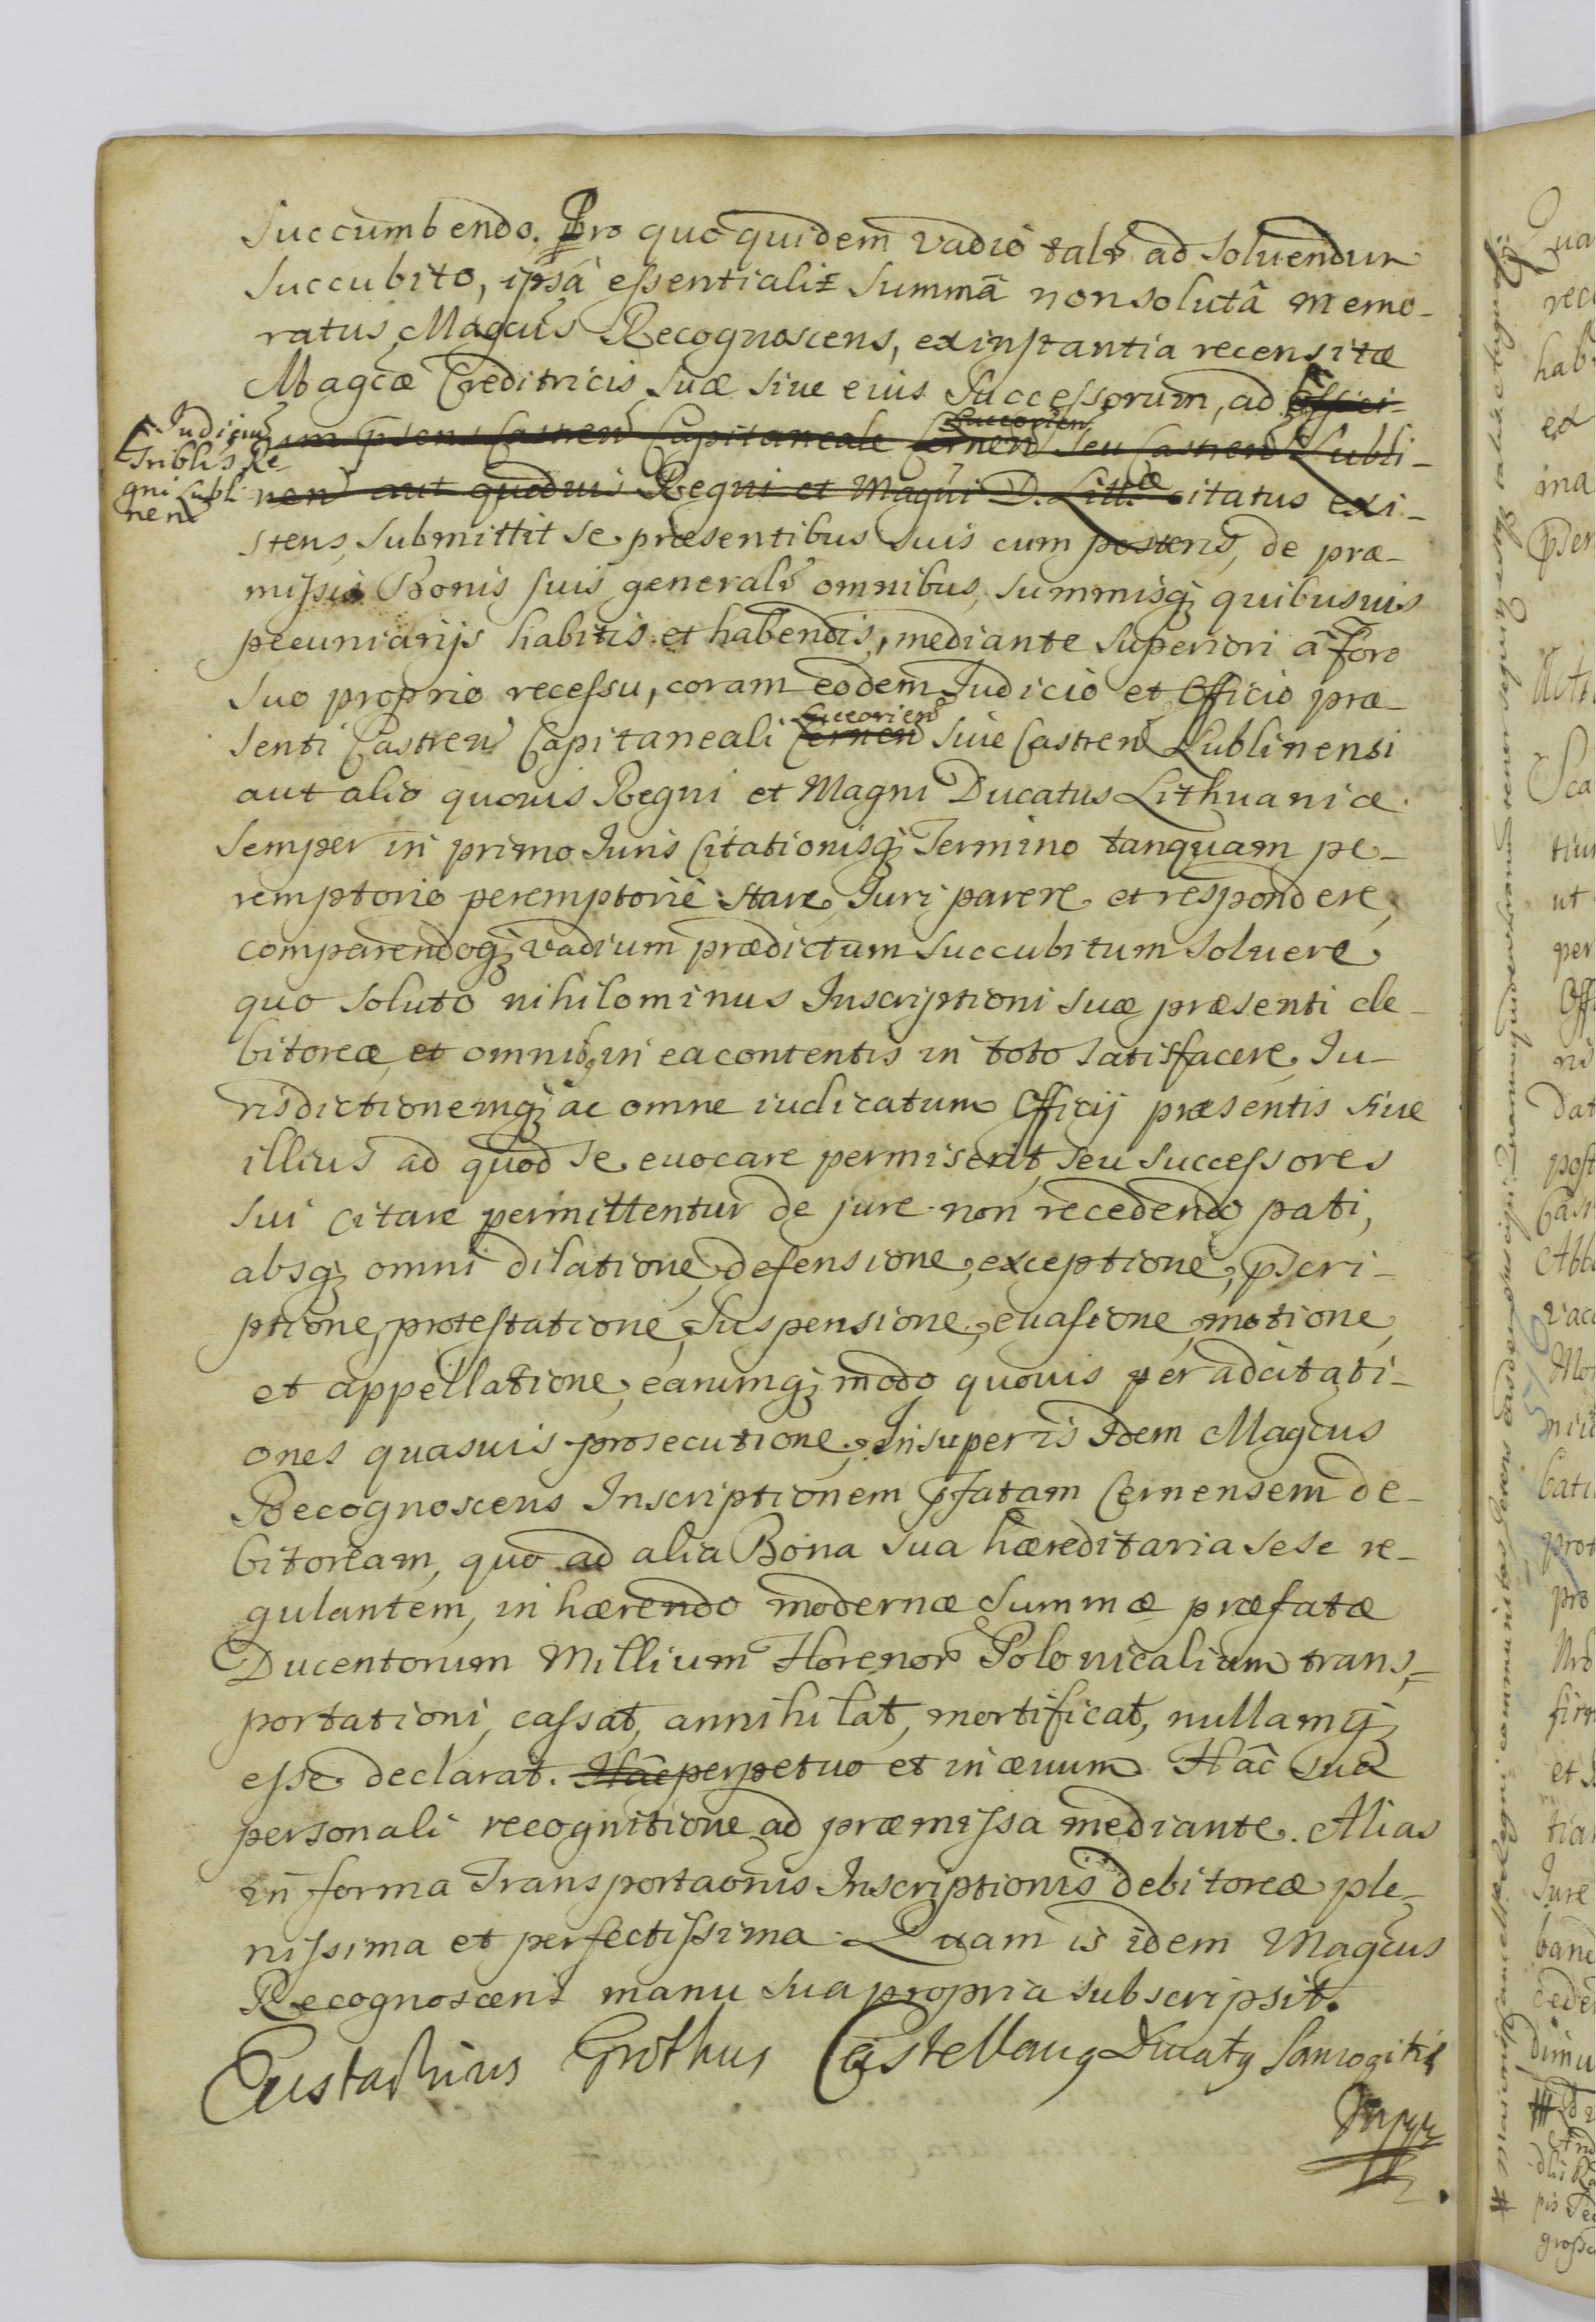 Succumbendo. Pro quo quidem vadio talr ad Soluendum
Succubito, ipsâ essentiali Summâ non solutâ memo-
ratus Magcus Recognoscens, ex instantia recensitæ
Magcæ Creditricis suæ siue eius Successorum, ad Offici-
Judicium
Triblis Re
gni Lubli
nen
um psens Castren Capitaneale Cernen seu Castren Lubli-
Luceorien
nen aut quoduis Regni et Magni D. Litt.æ citatus exi-
stens, submittit se præsentibus suis cum posteris, de præ-
missis Bonis suis generalr omnibus, summisq quibusuis
pecuniarijs habitis et habendis, mediante superiori â foro
suo proprio recessu, coram eodem Judicio et Officio præ-
Luceorien
senti Castren Capitaneali Cernen siue Castren Lublinensi
aut alio quouis Regni et Magni Ducatus Lithuaniæ
semper in primo Juris Citationisq Termino tanquam pe-
remptorio peremptorie stare, Juri parere et respondere,
comparendoq vadium prædictum succubitum soluere
quo soluto nihilominus Inscriptioni suæ præsenti de-
bitoreæ et omnib9 in ea contentis in toto satisfacere, Ju-
risdictionemq ac omne iudicatum Officij præsentis siue
illius ad quod se euocare permiserit, seu successores
sui citare permittentur de jure non recedendo pati,
absq omni dilatione, defensione, exceptione, pscri-
ptione, protestatione, suspensione, euasione, motione,
et appellatione, earumq modo quouis per adcitati-
ones quasuis prosecutione. Insuper is Idem Magcus
Recognoscens Inscriptionem pfatam Cernensem de-
bitoream, quo ad alia Bona sua hæreditaria sese re-
gulantem, in hærendo modernæ Summæ præfatæ
Ducentorum Millium Florenor Polonicalium trans-
portationi, cassat, annihilat, mortificat, nullamq
esse declarat. Hâc perpetuo et in æuum. Hâc sua
personali recognitione ad præmissa mediante. Alias
in forma Transportaonis Inscriptionis debitoreæ ple-
nissima et perfectissima. Quam is idem Magcus
Recognoscens manu sua propria subscripsit.
Eustachius Grothus Castellang Ducatg Samogitiæ
mppr